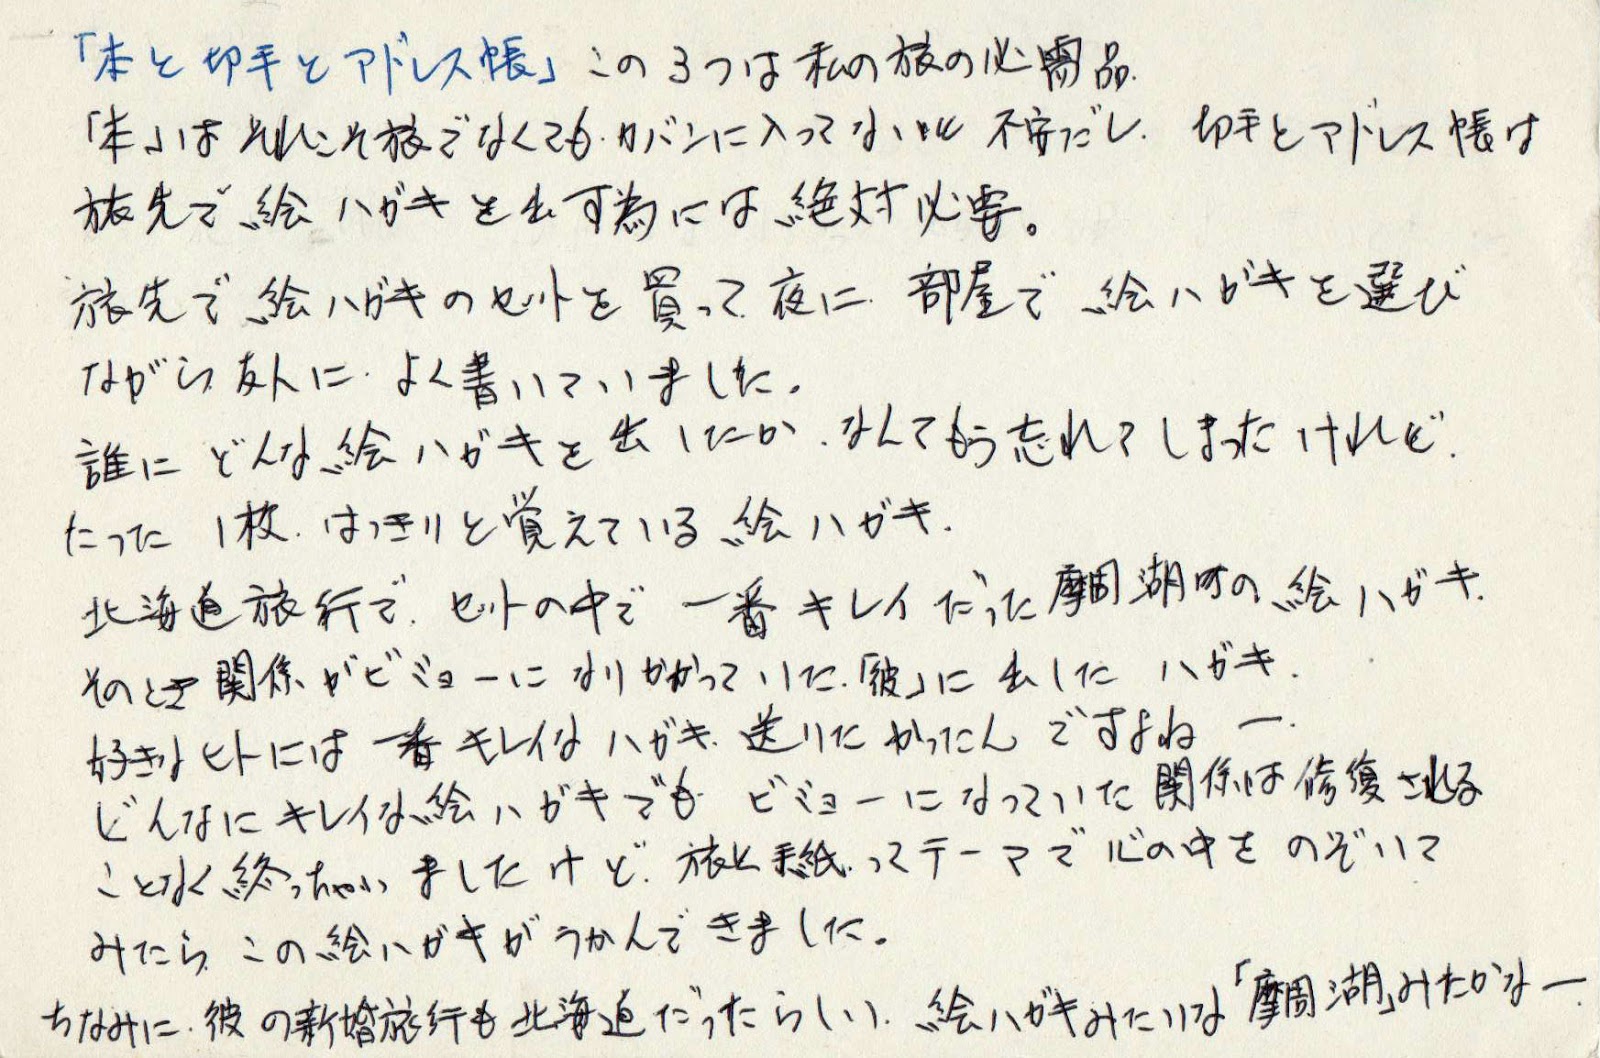 「本と切手とアドレス帳」この3つは私の旅の必需品.
「本」はそれこそ旅でなくても.カバンに入ってないと不安だし.切手とアドレス帳は
旅先で絵ハガキを出す為には絶対必要。
旅先で絵ハガキのセットを買って.夜に.部屋で絵ハガキを選び
ながら友人に.よく書いていました。
誰にどんな絵ハガキを出したか.なんてもう忘れてしまったけれど.
たった1枚.はっきりと覚えている絵ハガキ.
北海道旅行で.セットの中で一番キレイだった摩周湖の絵ハガキ.
そのとき関係がビミョーになりかかっていた.「彼」に出したハガキ.
好きなヒトには一番キレイなハガキ.送りたかったんですよねー.
どんなにキレイな絵ハガキでも.ビミョーになっていた関係は修復される
ことなく終っちゃいましたけど.旅と手紙.ってテーマで心の中をのぞいて
みたら.この絵ハガキがうかんできました。
ちなみに.彼の新婚旅行も北海道だったらしい.絵ハガキみたいな「摩周湖」みたかなー.